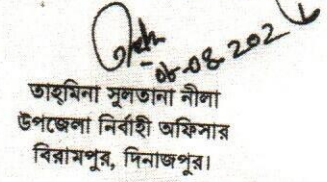 ০৮-০৪-202
তাহমিনা সুলতানা নীলা
উপজেলা নির্বাহী অফিসার
বিরামপুর, দিনাজপুর।